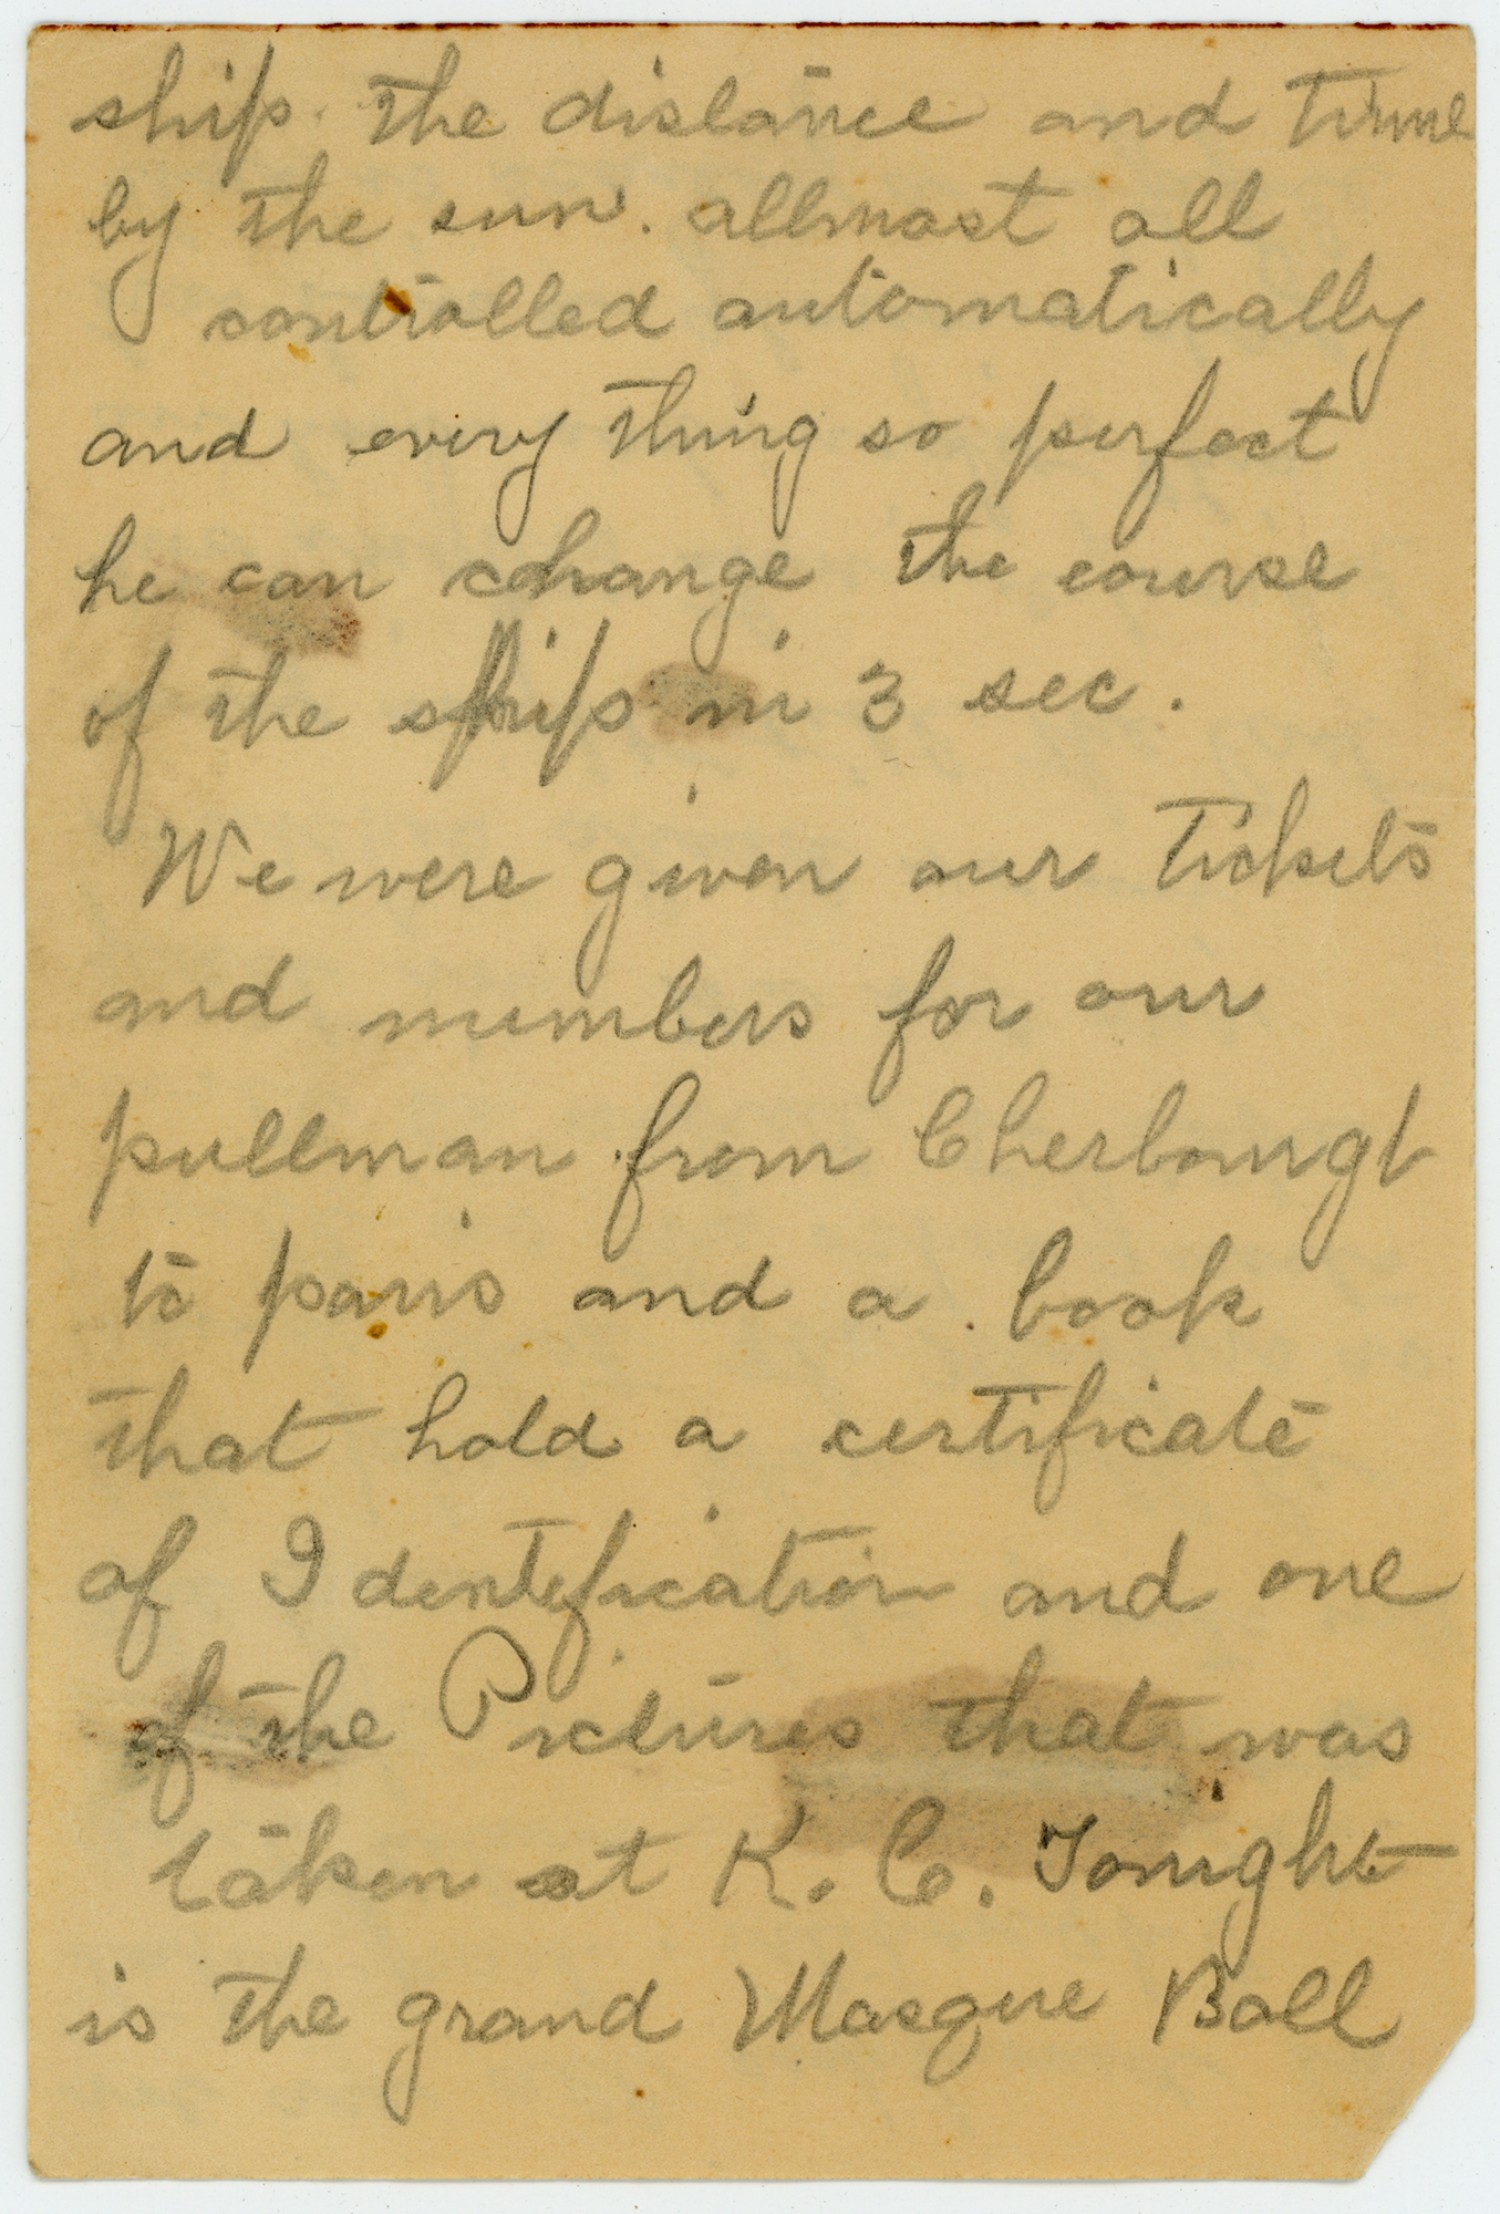 ship. the distance and time
by the sun. allmost all
controlled automatically
and every thing so perfect
he can change the course
of the ship in 3 sec.
We were given our tickets
and numbers for our
pullman from Cherbourgh
to paris and a book
that hold a certificate
of Identification and one
of the Pictures that was
taken at K. C. Tonight
is the grand Masque Ball